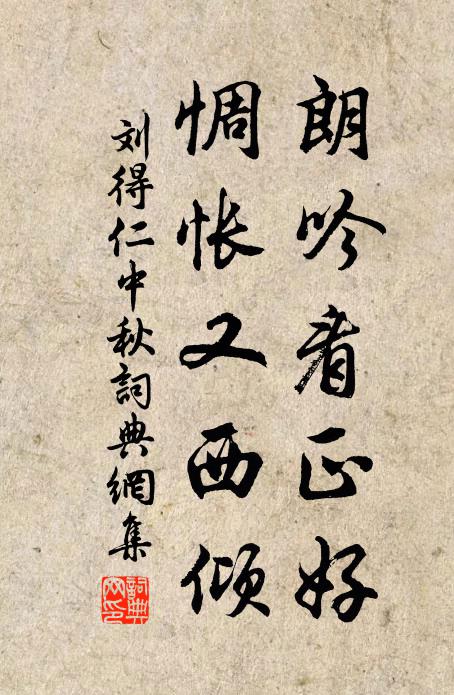 朗吟看正好
惆怅又西倾
刘得仁中秋詞典網集
詞典网印